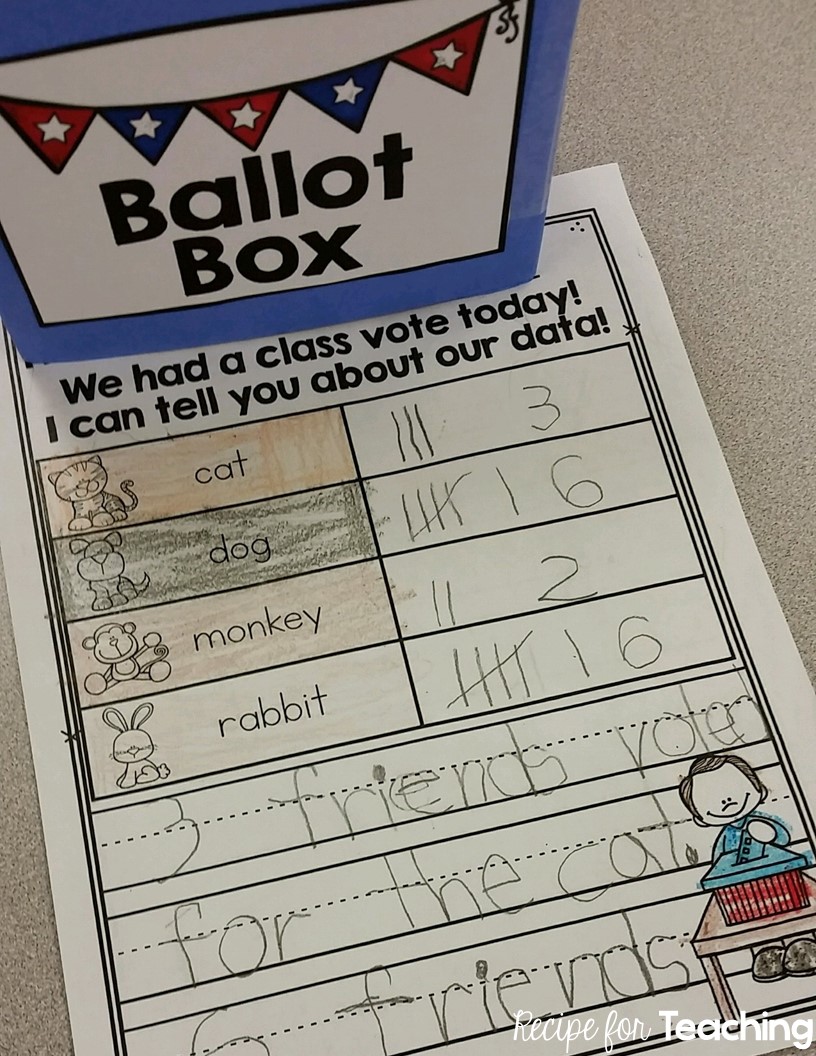 Ballot
Box
We had a class vote today!
I can tell you about our data!
cat 3
dog 6
monkey 2
rabbit 6
3 friends voted
for the cat.
6 friends
Recipe for Teaching